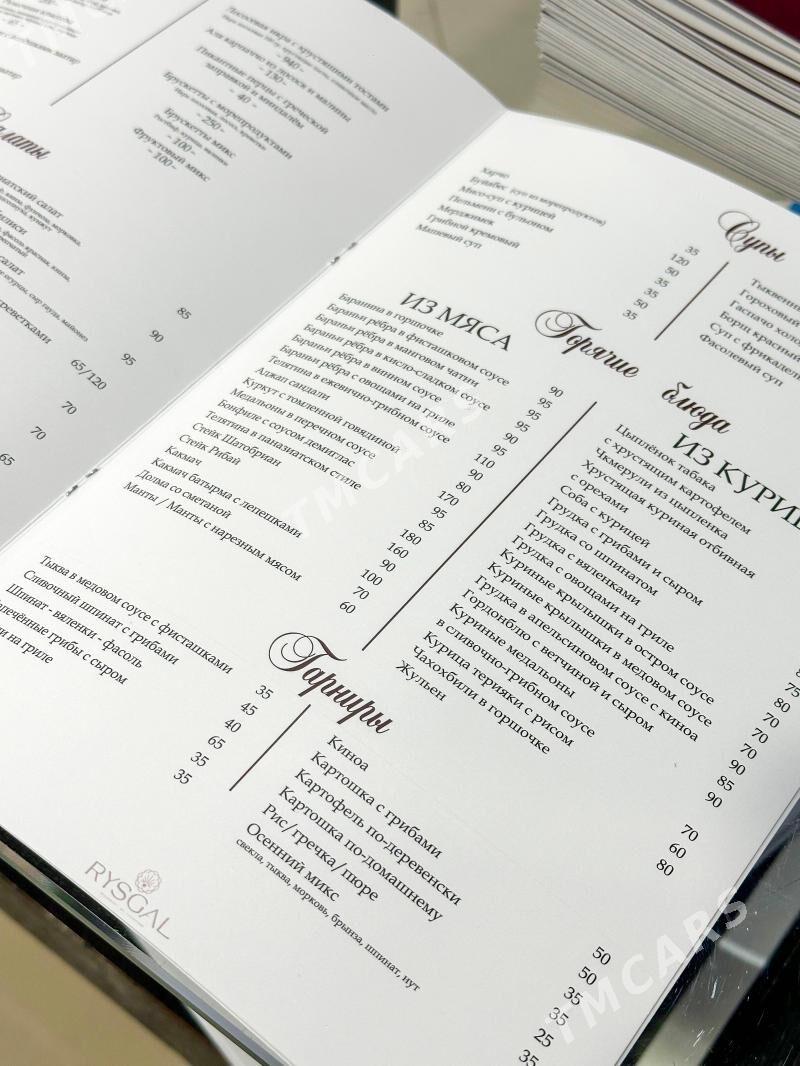 Лососевая икра с хрустящими тостами
- 940 -
Аля карпаччо из лосося и малины
- 130 -
Пикантные перцы с греческой
заправкой и миндалём
- 40 -
Брускетты с морепродуктами
- 250 -
Брускетты микс
- 100 -
Фруктовый микс
- 100 -
салат
85
90
95
65/120
70
70
65
Супы
Харчо
Буйабес (суп из морепродуктов)
Мисо-суп с курицей
Пельмени с бульоном
Мерджимек
Грибной кремовый
Машевый суп
35
120
50
35
35
50
35
Гороховый
Борщ красный
Фасолевый суп
Горячие блюда
ИЗ МЯСА
Баранина в горшочке
Бараньи рёбра в фисташковом соусе
Бараньи рёбра в манговом чатни
Бараньи рёбра в кисло-сладком соусе
Бараньи рёбра в винном соусе
Бараньи рёбра с овощами на гриле
Телятина в ежевично-грибном соусе
Аджап сандали
Куркут с томленной говядиной
Медальоны в перечном соусе
Бонфиле с соусом демиглас
Телятина в паназиатском стиле
Стейк Шатобриан
Стейк Рибай
Какмач
Какмач батырма с лепешками
Долма со сметаной
Манты / Манты с нарезным мясом
90
95
95
95
90
95
110
90
80
170
95
85
180
160
90
100
70
60
ИЗ КУРИ
Цыплёнок табака
с хрустящим картофелем
Чкмерули из цыпленка
Хрустящая куриная отбивная
с орехами
Соба с курицей
Грудка с грибами и сыром
Грудка со шпинатом
Грудка с вяленками
Грудка с овощами на гриле
Куриные крылышки в остром соусе
Куриные крылышки в медовом соусе
Грудка в апельсиновом соусе с киноа
Гордонблю с ветчиной и сыром
Куриные медальоны
в сливочно-грибном соусе
Курица терияки с рисом
Чахохбили в горшочке
Жульен
75
80
70
70
70
90
85
90
70
60
80
Гарниры
Тыква в медовом соусе с фисташками
Сливочный шпинат с грибами
Шпинат - вяленки - фасоль
печённые грибы с сыром
и на гриле
35
45
40
65
35
35
Киноа
Картошка с грибами
Картофель по-деревенски
Картошка по-домашнему
Рис/гречка/пюре
Осенний микс
свекла, тыква, морковь, брынза, шпинат, нут
50
50
35
35
25
35
RYSGAL
TMCARS
TMCARS